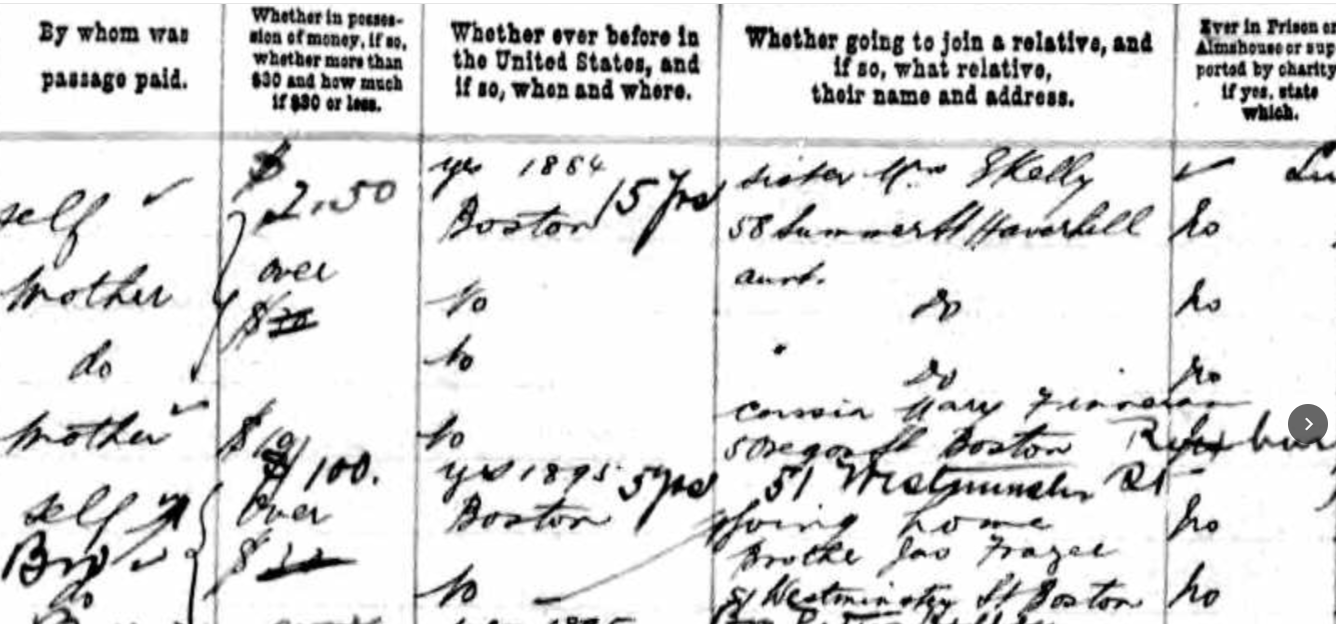 By whom was
passage paid.
Whether in posses-
sion of money, if so,
whether more than
$30 and how much
if $30 or less.
Whether ever before in
the United States, and
if so, when and where.
Whether going to join a relative, and
if so, what relative,
their name and address.
Ever in Prison or
Almshouse or sup
ported by charity
if yes, state
which.
self
$
250
yes 1884
Boston 15 yrs
sister Mrs Skelly
58 Summer St Haverhill
no
Mother
over
$30
No
aunt.
Do
no
do
No
"
Do
no
Mother
$
No
cousin Mary
5 Oregon St Boston
self
$100.
Over
$
yes 1895 5 yrs
Boston
51 Westminster St
going home
no
Bro
do
No
Brother Jas Frazee
51 Westminster St Boston
no